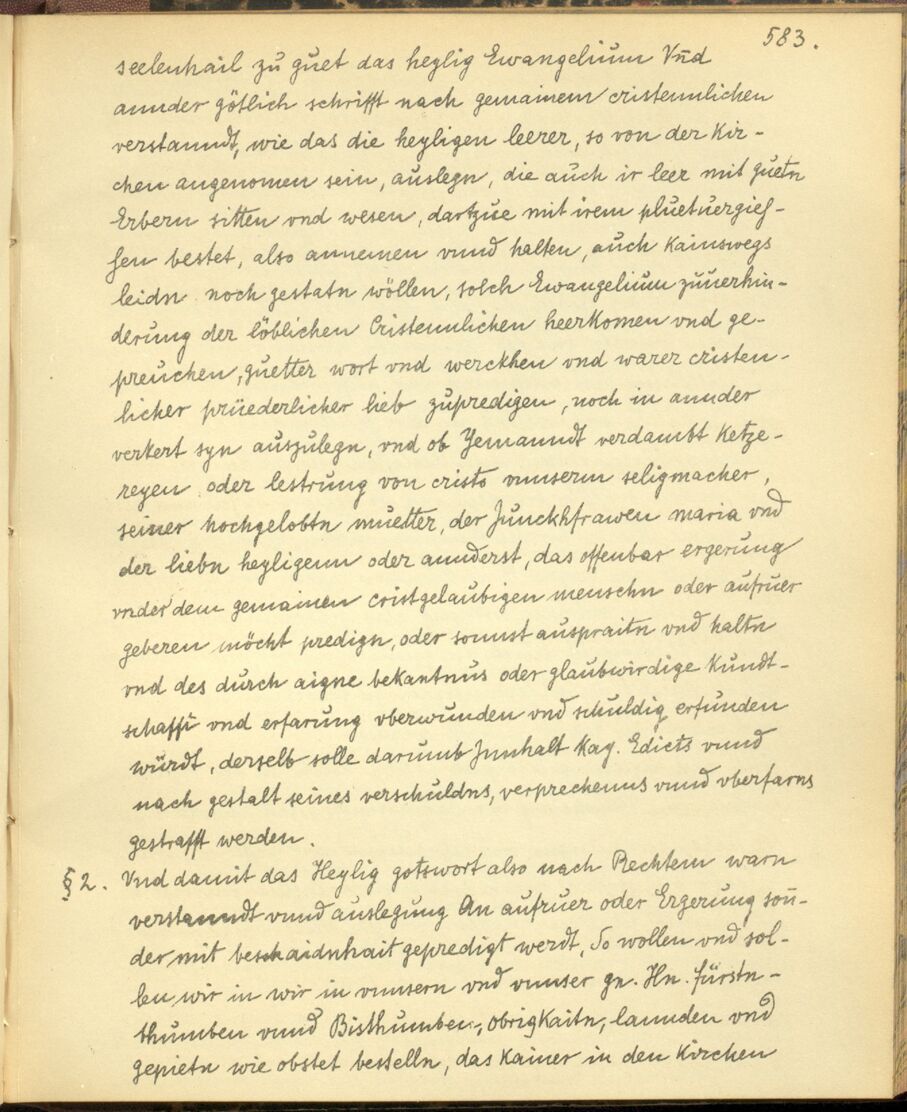 583.
seelenhail zu guet das heylig Ewangelium Vnd
annder götlich schrifft nach gemainem cristennlichen
verstanndt, wie das die heyligen leerer, so von der Kir-
chen angenomen sein, auslegn, die auch ir leer mit guetn
Erbern sitten vnd wesen, dartzue mit irem pluetuergies-
sen bestet, also annemen vnnd halten, auch Kainswegs
leidn noch gestatn wöllen, solch Ewangelium zuuerhin-
derung der löblichen Cristennlichen heerkomen vnd ge-
preuchen, guetter wort vnd werckhen vnd warer cristen-
licher prüederlicher lieb zupredigen, noch in annder
verkert syn auszulegn, vnd ob Yemanndt verdambt Ketze-
reyen oder lestrung von cristo vnnserm seligmacher,
seiner hochgelobtn muetter, der Junckhfrawen maria vnd
der liebn heyligenn oder annderst, das offenbar ergerung
vnder dem gemainen cristgelaubigen menschn oder aufruer
geberen möcht predign, oder sonnst auspraitn vnd haltn
vnd des durch aigne bekantnus oder glaubwirdige Kundt-
schafft vnd erfarung vberwunden vnd schuldig erfunden
würdt, derselb solle darumb Innhalt Kay. Edicts vnnd
nach gestalt seines verschuldns, verprechenns vnnd vberfarns
gestrafft werden.
§ 2. Vnd damit das Heylig gotswort also nach Rechtem warn
verstanndt vnnd auslegung An aufruer oder Ergerung son-
der mit beschaidnhait gepredigt werdt, So wollen vnd sol-
len wir in wir in vnnsern vnd vnnser gn. Hn. fürstn-
thumben vnnd Bisthumben, obrigkaitn, lannden vnd
gepietn wie obstet bestelln, das Kainer in den Kirchen